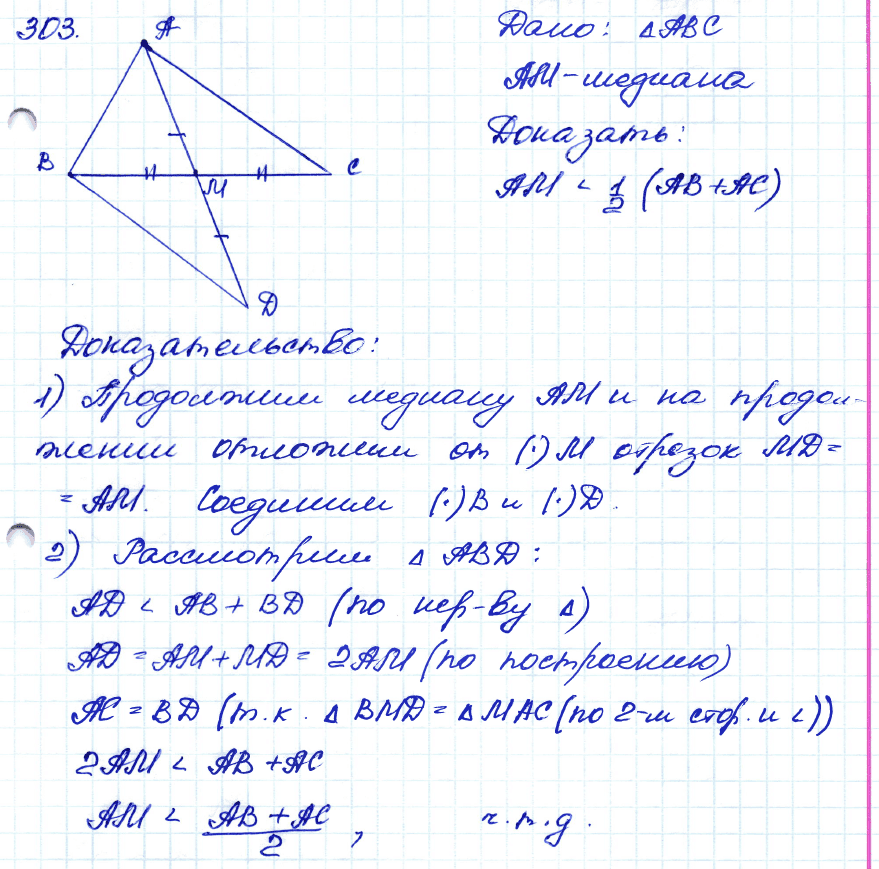 303.
A
B
M
C
D
Дано: △ABC
AM-медиана
Доказать:
AM < 1/2 (AB+AC)
Доказательство:
1) Продолжим медиану AM и на продол-
жении отложим от (·)M отрезок MD=
=AM. Соединим (·)B и (·)D.
2) Рассмотрим △ ABD:
AD < AB+BD (по нер-ву △)
AD=AM+MD=2AM (по построению)
AC=BD (т.к. △ BMD=△MAC (по 2-м стор. и ∠))
2AM < AB+AC
AM < (AB+AC)/2, ч.т.д.